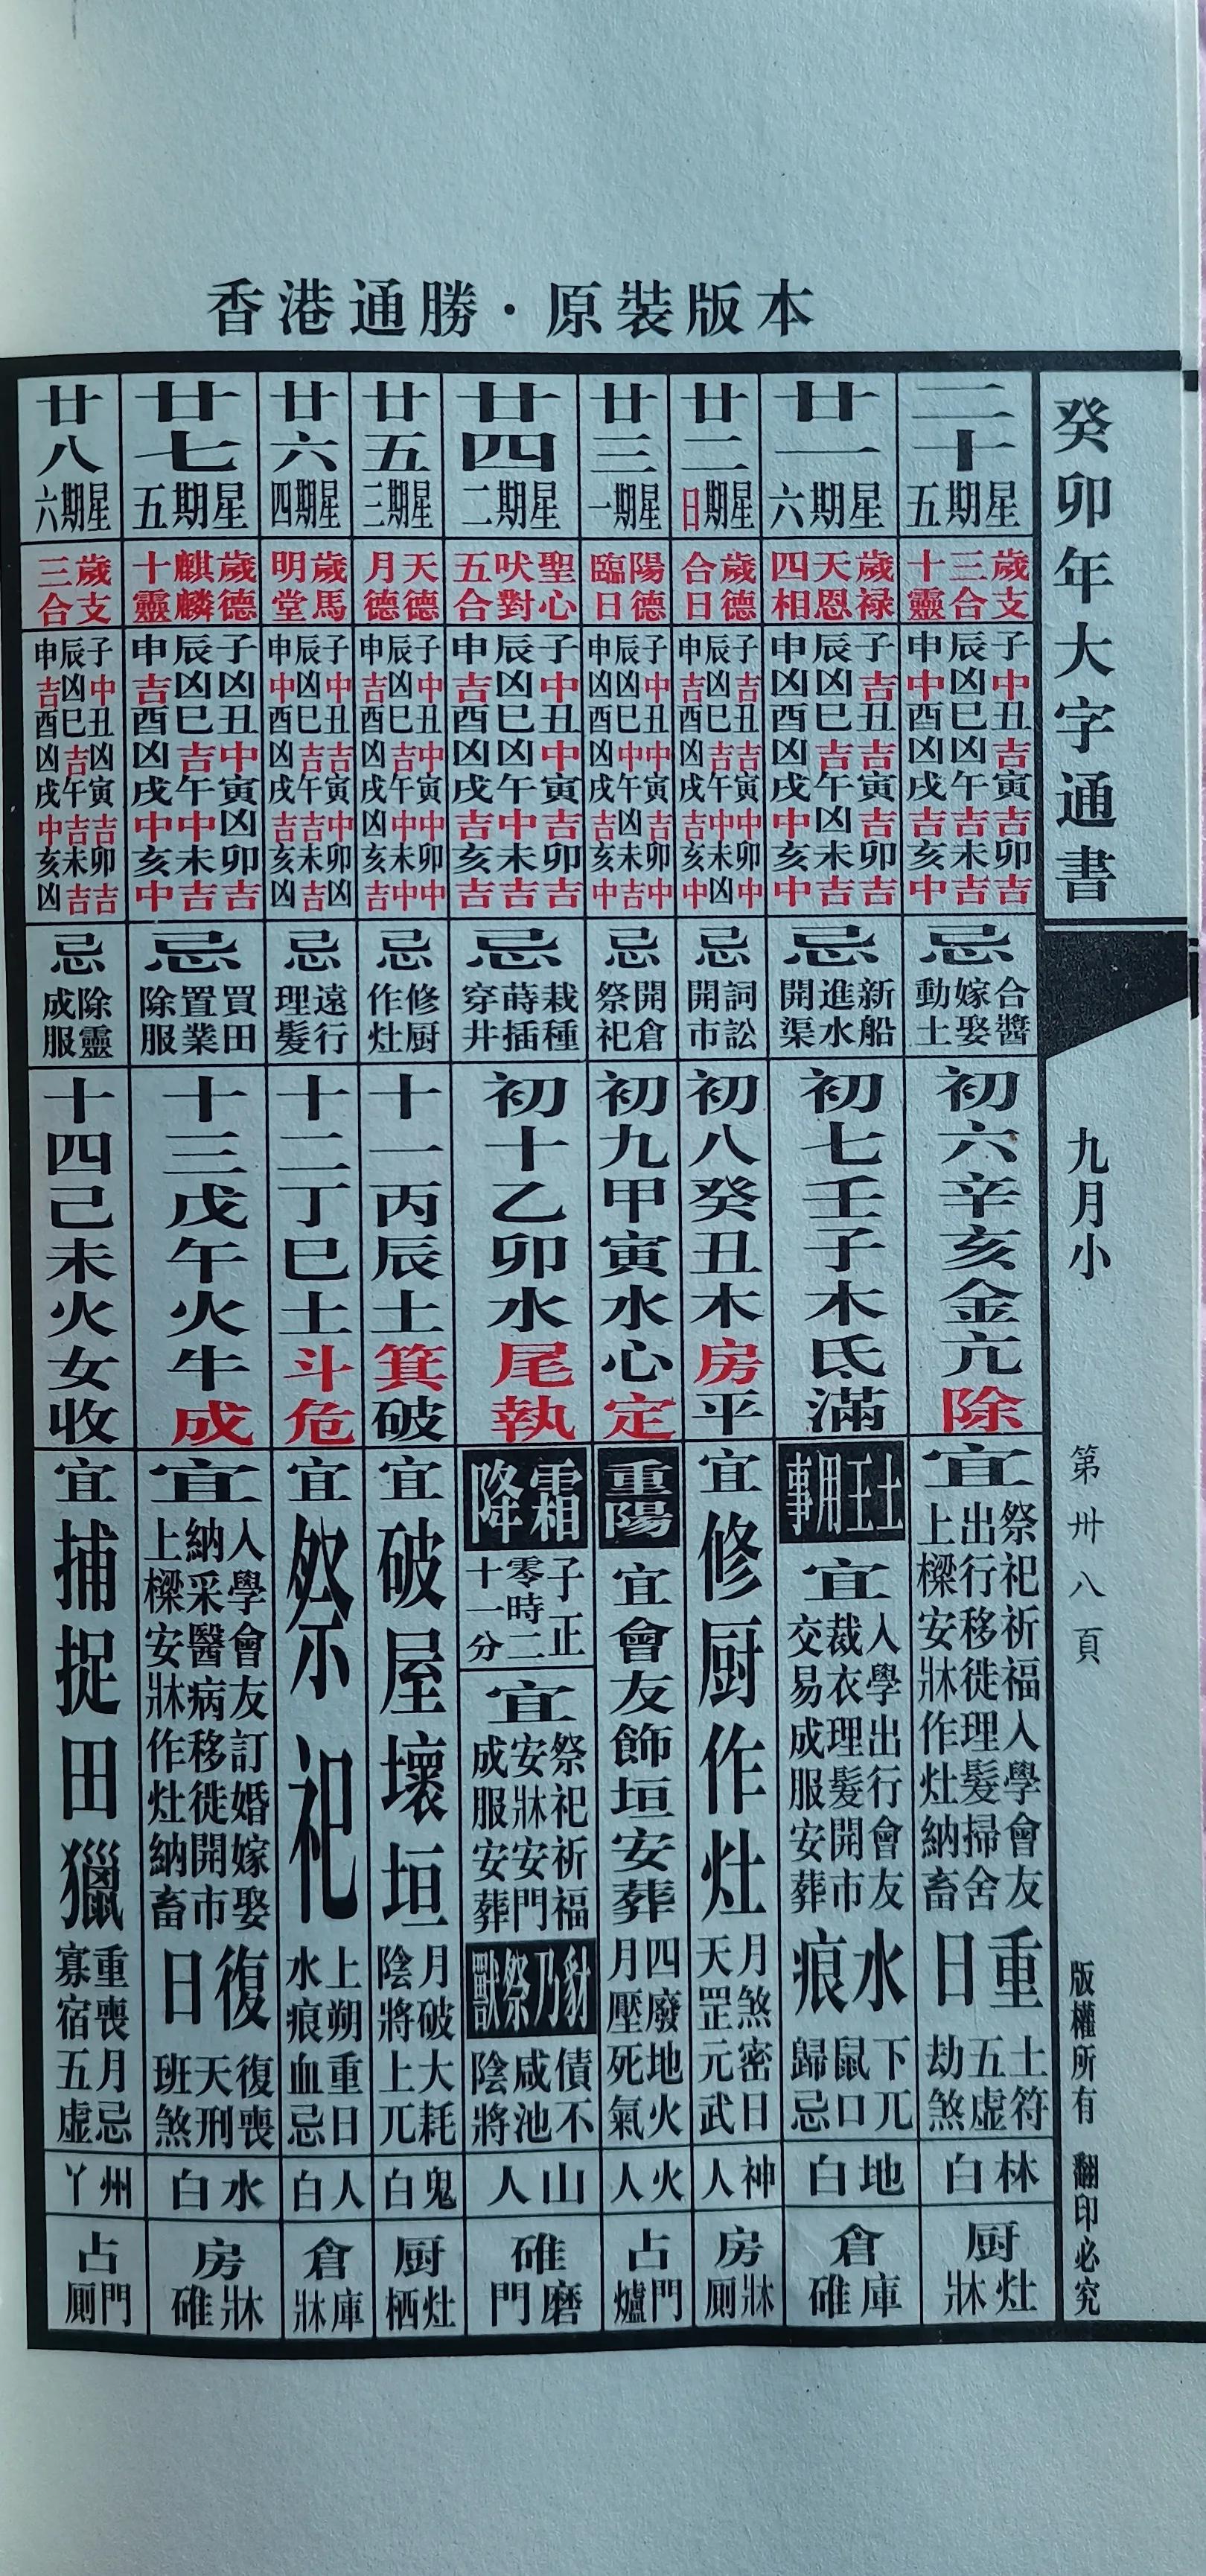 香港通勝・原裝版本
癸卯年大字通書
九月小
第卅八頁
版權所有 翻印必究
二十
星期五
歲支
三合
十靈
子中丑吉寅吉卯吉
辰凶巳凶午吉未吉
申中酉凶戌吉亥中
忌
合醬
嫁娶
動土
初六辛亥金亢除
宜
祭祀祈福入學會友
出行移徙理髮掃舍
上樑安牀作灶納畜
重日
土符
五虛
劫煞
林白
厨
灶牀
廿一
星期六
歲禄
天恩
四相
子吉丑吉寅吉卯吉
辰凶巳吉午凶未吉
申凶酉凶戌中亥中
忌
新船
進水
開渠
初七壬子木氐滿
土王用事
宜
入學出行會友
裁衣理髮開市
交易成服安葬
水痕
下兀
鼠口
歸忌
地白
倉
庫碓
廿二
星期日
歲德
合日
子吉丑吉寅中卯中
辰凶巳吉午中未凶
申吉酉凶戌吉亥中
忌
詞訟
開市
初八癸丑木房平
宜
修厨作灶
月煞密日
天罡元武
神人
房
牀厠
廿三
星期一
陽德
臨日
子中丑中寅吉卯中
辰凶巳中午凶未吉
申凶酉凶戌吉亥中
忌
開倉
祭祀
初九甲寅水心定
重陽
宜會友飾垣安葬
四廢地火
月壓死氣
火人
占
門爐
廿四
星期二
聖心
吠對
五合
子中丑中寅吉卯吉
辰凶巳凶午中未吉
申吉酉凶戌吉亥吉
忌
栽種
蒔插
穿井
初十乙卯水尾執
霜降
子正
零時二
十一分
宜
祭祀祈福
安牀安門
成服安葬
豺乃祭獸
債不
咸池
陰將
山人
碓
磨門
廿五
星期三
天德
月德
子中丑中寅中卯中
辰凶巳吉午中未中
申吉酉凶戌凶亥吉
忌
修厨
作灶
十一丙辰土箕破
宜
破屋壞垣
月破大耗
陰將上兀
鬼白
厨
灶栖
廿六
星期四
歲馬
明堂
子中丑吉寅中卯凶
辰凶巳吉午吉未吉
申中酉凶戌吉亥凶
忌
遠行
理髮
十二丁巳土斗危
宜
祭祀
上朔重日
水痕血忌
人白
倉
庫牀
廿七
星期五
歲德
麒麟
十靈
子凶丑中寅凶卯吉
辰凶巳吉午中未吉
申吉酉凶戌中亥中
忌
買田
置業
除服
十三戊午火牛成
宜
入學會友訂婚嫁娶
納采醫病移徙開市
上樑安牀作灶納畜
復日
復喪
天刑
班煞
水白
房
牀碓
廿八
星期六
歲支
三合
子中丑凶寅吉卯吉
辰凶巳吉午吉未吉
申吉酉凶戌中亥凶
忌
除靈
成服
十四己未火女收
宜
捕捉田獵
重喪月忌
寡宿五虛
州丫
占
門厠